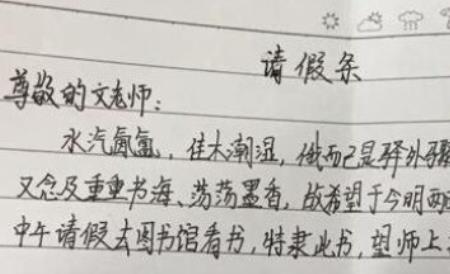 请假条
尊敬的文老师:
水汽氤氲,佳木潮湿,俄而已是驿外骤
又念及重重书海、荡荡墨香,故希望于今明两
中午请假去图书馆看书,特隶此书,望师上